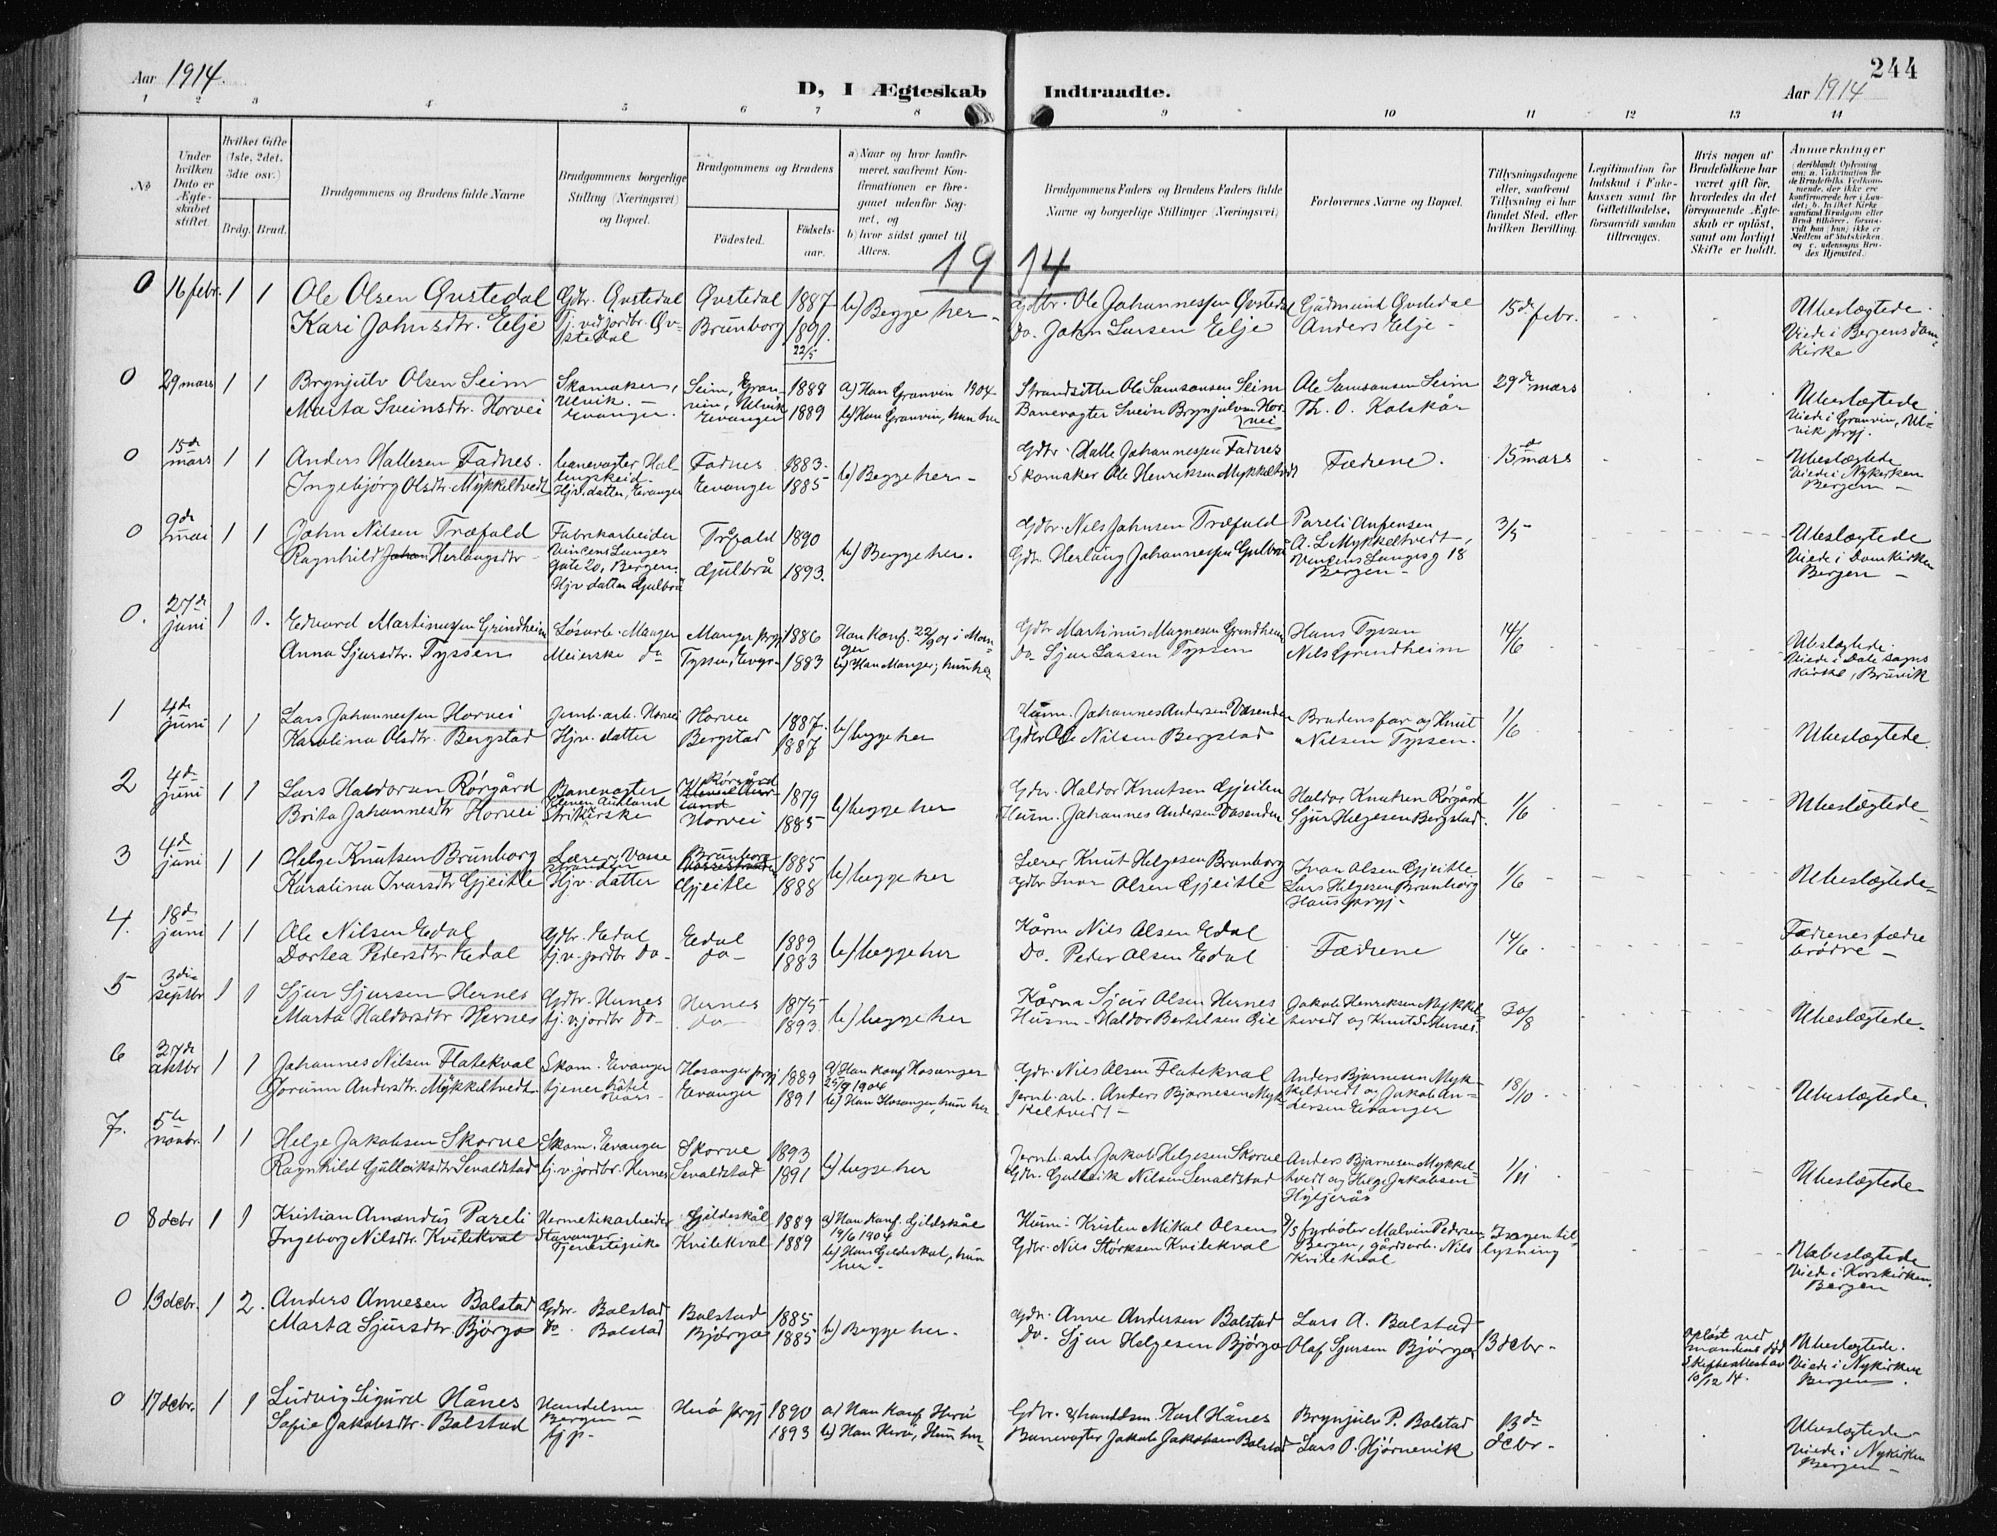 244
Aar 1914.
D, I Ægteskab Indtraadte.
Aar 1914
1 2 3 4 5 6 7 8 9 10 11 12 13 14
No
Under hvilken Dato er Ægteskabet stiftet.
Hvilket Gifte (1ste, 2det, 3die osv.)
Brdg. Brud.
Brudgommens og Brudens fulde Navne
Brudgommens borgerlige Stilling (Næringsvei) og Bopæl.
Brudgommens og Brudens
Födested.
Födselsaar.
a) Naar og hvor konfirmeret, saafremt Konfirmationen er foregaaet udenfor Sognet, og
b) hvor sidst gaaet til Alters.
Brudgommens Faders og Brudens Faders fulde Navne og borgerlige Stillinger (Næringsvei)
Forlovernes Navne og Bopæl.
Tillysningsdagene eller, saafremt Tillysning ei har fundet Sted, efter hvilken Bevilling.
Legitimation for Indskud i Enkekassen samt for Giftetilladelse, forsaavidt saadan tiltrænges.
Hvis nogen af Brudefolkene har været gift för, hvorledes da det foregaaende Ægteskab er oplöst, samt om lovligt Skifte er holdt.
Anmærkninger
1914
0 16 febr. 1 1 Ole Olsen Qvstedal Gdbr. Qvstedal Qvstedal 1887 b) Begge her Gdbr. Ole Johannessen Qvstedal Gudmund Qvstedal 15de febr. Ubeslægtede.
Kari Johnsdtr. Eelje Tj. ved jordbr. Qvstedal Brunborg 1891. 22/5 Do. John Larsen Eelje Anders Eelje Viede i Bergens domkirke
0 29 mars 1 1 Brynjulv Olsen Seim Skomaker, Ulvik. Seim, Granvin, Ulvik 1888 a) Han Granvin 1904 Strandsitter Ole Samsonsen Seim Ole Samsonsen Seim 29de mars Ubeslægtede
Marta Sveinsdtr. Horvei Evanger. Evanger 1889 b) Han Granvin, hun her Banevogter Svein Brynjulvsen Horvei Th. O. Kolskår Viede i Granvin, Ulvik prgj.
0 15de mars 1 1 Anders Hallesen Fadnes. banevogter, Hallingskeid Fadnes 1883 b) Begge her Gdbr. Halle Johannessen Fadnes Fædrene. 15de mars Ubeslægtede
Ingebjörg Olsdtr. Mykkeltvedt Hjv. datter, Evanger Evanger 1885 Skomaker Ole Henriksen Mykkeltvedt Viede i Nykirken Bergen
0 9de mai 1 1 John Nilsen Træfald Fabrikarbeider Vincens Lunges gate 20, Bergen. Tråfald 1890 b) Begge her. Gdbr. Nils Johnsen Træfald Pareli Anfensen 3/5 Ubeslægtede
Ragnhild Herlaugsdtr Hjv. datter Gulbrå Gulbrå 1893. Gdbr. Herlaug Johannessen Gulbrå A. L. Mykkeltvedt, Vincens Lunges g 18 Bergen Viede i Domkirken Bergen
0. 27de juni 1 1. Edvard Martinussen Grindheim Lösarb. Manger Manger prgj 1886 Han Konf. 22/9 01 i Manger Gdbr Martinus Magnesen Grindheim Hans Tyssen 14/6 Ubeslægtede.
Anna Sjursdtr. Tyssen Meierske do Tyssen, Evgr. 1883 b) Han Manger; hun her Do. Sjur Larsen Tyssen Nils Grindheim Viede i Dale sogns kirke, Bruvik
1 4de juni 1 1 Lars Johannessen Horvei Jernb. arb. Horvei Horvei 1887 b) begge her Husm. Johannes Andersen Væsenden Brudens far og Knut 1/6 Ubeslægtede.
Karolina Olsdtr. Bergstad Hjv. datter Bergstad 1887 Gdbr Ole Nilsen Bergstad Nilsen Tyssen.
2 4de juni 1 1 Lars Haldorsen Rørgård Banevogter Rørgård 1879 b) begge her Gdbr. Haldor Knutsen Gjeitlen Haldor Knutsen Rørgård 1/6 Ubeslægtede
Brita Johannesdtr Horvei Strikerske Horvei 1885 Husm. Johannes Andersen Vasenden Sjur Helgesen Bergstad.
3 4de juni 1 1 Helge Knutsen Brunborg Lærer, Vasse Brunborg 1885 b) begge her Lærer Knut Helgesen Brunborg Ivar Olsen Gjeitle 1/6 Ubeslægtede
Karolina Ivarsdtr Gjeitle Hjv. datter Gjeitle 1888 Gdbr Ivar Olsen Gjeitle Lars Helgesen Brunborg Haus prgj.
4. 18de juni 1 1 Ole Nilsen Edal Gdbr. Edal Edal 1889 b) begge her Kårm Nils Olsen Edal Fædrene 14/6 Fædrenes fædre brödre
Dortea Pedersdtr Edal tj. v. jordbr do do 1883 Do. Peder Olsen Edal
5 3die septbr 1 1 Sjur Sjursen Hernes Gdbr. Hernes Hernes 1875 b) begge her Kårm Sjur Olsen Hernes Jakob Henriksen Mykkeltvedt og Knut S. Hernes. 30/8 Ubeslægtede.
Marta Haldorsdtr Hernes tj. v. jordbr do do 1893. Husm. Haldor Bertelsen Gil
6 27de oktbr 1 1 Johannes Nilsen Flatekval Skom. Evanger Hosanger prgj 1889 a) Han konf Hosanger 25/9 1904 Gdbr. Nils Olsen Flatekval Anders Bjarnesen Mykkeltvedt og Jakob Andersen Evanger 18/10 Ubeslægtede.
Jorunn Andersdtr. Mykkeltvedt tjener hotel Evanger 1891 b) Han Hosanger, hun her Jernb. arb. Anders Bjarnesen Mykkeltvedt
7. 5te novbr. 1 1 Helge Jakobsen Skorve Skom. Evanger Skorve 1893 b) begge her Jernb. arb Jakob Helgesen Skorve Anders Bjarnesen Mykkeltvedt og Helge Jakobsen Hyljerås 1/11 Ubeslægtede
Ragnhild Gulleiksdtr Sevaldstad tj. v. jordbr. Hernes Sevaldstad 1891 Gdbr. Gulleik Nilsen Sevaldstad
0 8 debr 1 1 Kristian Amandus Pareli Hermetikarbeider Stavanger Gildeskål 1889 a) Han Konf. Gildskål 19/6 1904 Husm. Kristen Mikal Olsen D/S fyrböter Malvin Pedersen Ingen tillysning Ubeslægtede
Ingeborg Nilsdtr. Kvilekval Tjenestepike Kvilekval 1889 b) Han Gildeskal, hun her Gdbr. Nils Störksen Kvilekval Bergen, gårdsarb. Nils Kvilekval Viede i Korskirken, Bergen
0 13 debr. 1 2. Anders Arnesen Bolstad Gdbr. Bolstad Bolstad 1885 b) Begge her. Gdbr. Arne Andersen Bolstad Lars A. Bolstad 13 debr oplöst ved mandens död Skifteattest av 10/12 14. Ubeslægtede.
Marta Sjursdtr Björgo do. Bolstad Björgo 1885 Do. Sjur Helgesen Björgo Olaf Sjursen Björgo Viede i Nykirken Bergen
0 17 debr. 1 1 Ludvig Sigurd Hånes Handelsm Bergen Herö prgj 1890 a) Han Konf Herö Gdbr. & handelsm. Karl Hånes Brynjulv P. Bolstad 13de debr Ubeslægtede
Sofie Jakobsdtr. Bolstad tjp. 1893 b) Han Herö, Hun her Banevogter Jakob Jakobsen Bolstad Lars O. Hjørnevik Viede i Nykirken Bergen